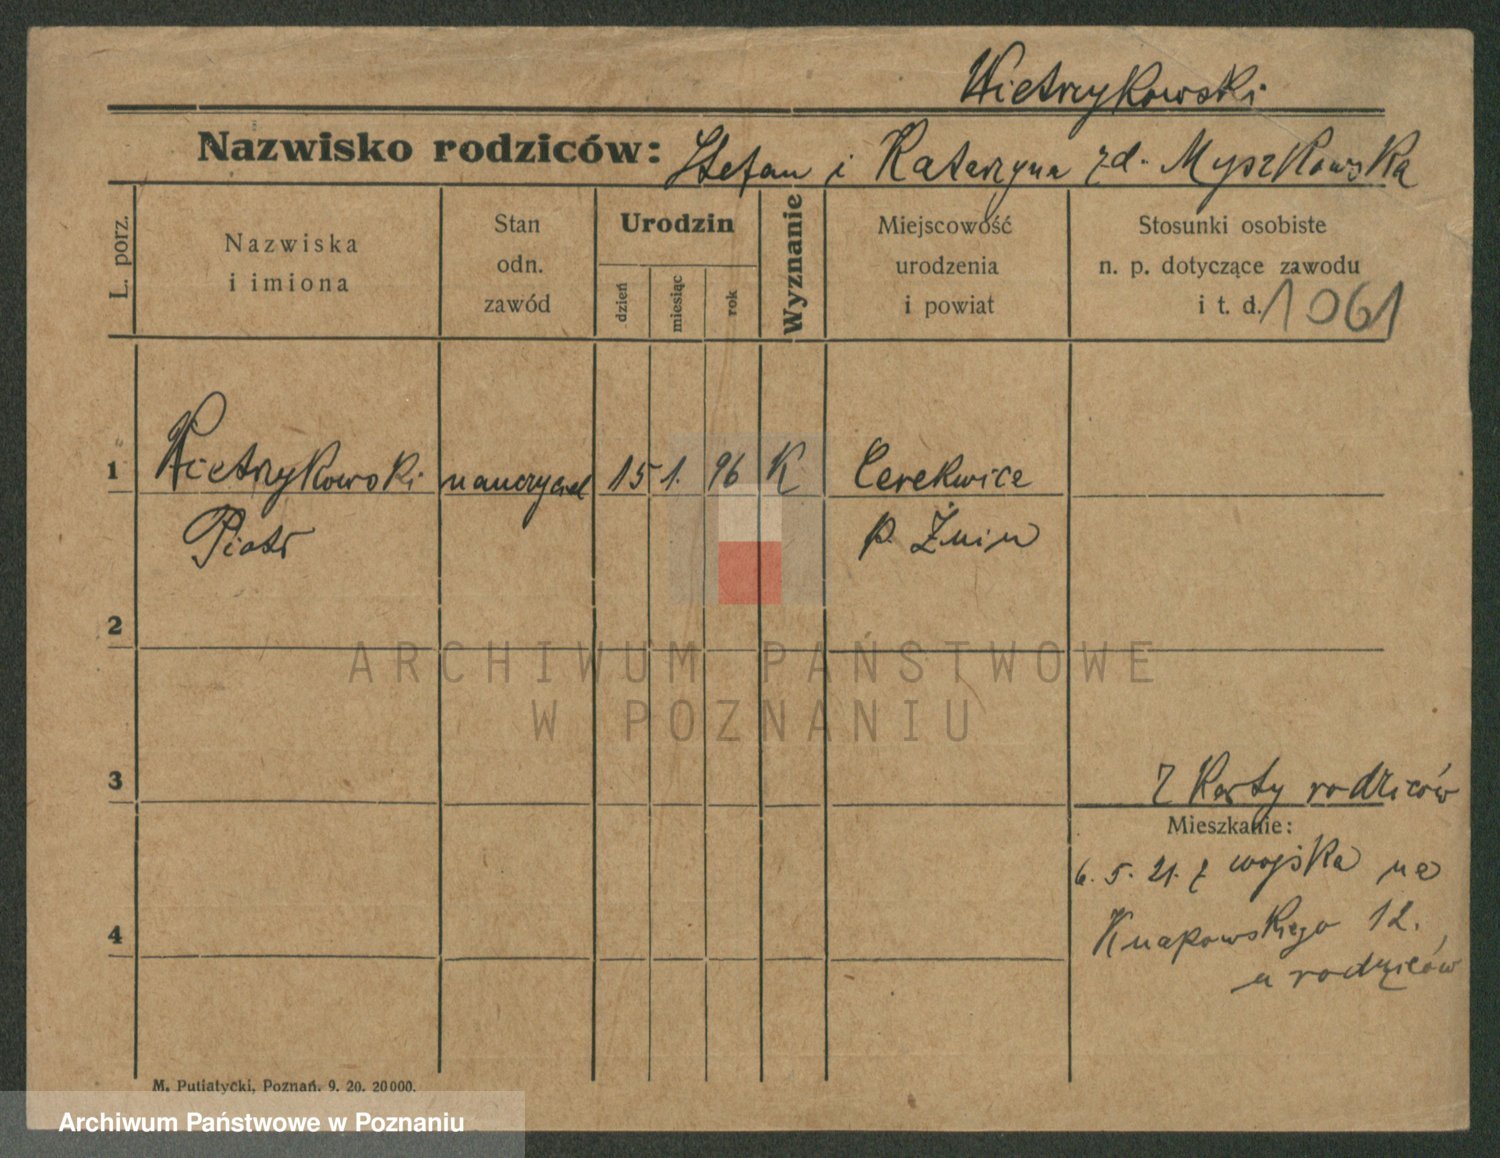 Wietrzykowski
Nazwisko rodziców: Stefan i Katarzyna zd. Myszkowska
L. porz.
Nazwiska
i imiona
Stan
odn.
zawód
Urodzin
dzień
miesiąc
rok
Wyznanie
Miejscowość
urodzenia
i powiat
Stosunki osobiste
n. p. dotyczące zawodu
i t. d. 1061
1 Wietrzykowski nauczyciel 15 1. 96 K Cerekwice
Piotr p. Żnin
2
ARCHIWUM PAŃSTWOWE
W POZNANIU
3 Z karty rodziców
Mieszkanie:
6. 5. 21. z wojska na
4 Knapowskiego 12.
u rodziców
M. Putiatycki, Poznań. 9. 20. 20000.
Archiwum Państwowe w Poznaniu